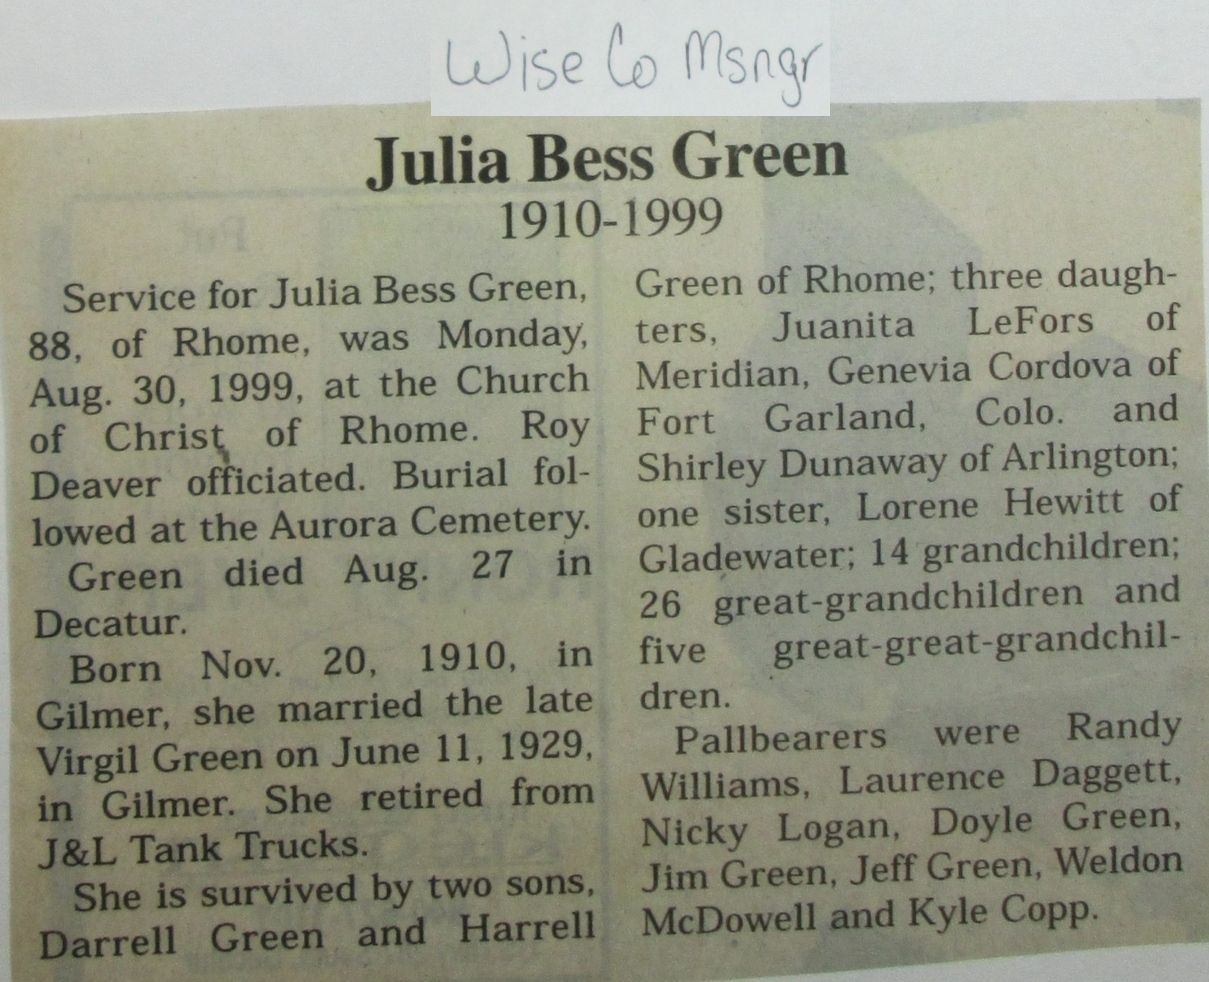 Wise Co Msngr
Julia Bess Green
1910-1999
Service for Julia Bess Green,
88, of Rhome, was Monday,
Aug. 30, 1999, at the Church
of Christ of Rhome. Roy
Deaver officiated. Burial fol-
lowed at the Aurora Cemetery.
Green died Aug. 27 in
Decatur.
Born Nov. 20, 1910, in
Gilmer, she married the late
Virgil Green on June 11, 1929,
in Gilmer. She retired from
J&L Tank Trucks.
She is survived by two sons,
Darrell Green and Harrell
Green of Rhome; three daugh-
ters, Juanita LeFors of
Meridian, Genevia Cordova of
Fort Garland, Colo. and
Shirley Dunaway of Arlington;
one sister, Lorene Hewitt of
Gladewater; 14 grandchildren;
26 great-grandchildren and
five great-great-grandchil-
dren.
Pallbearers were Randy
Williams, Laurence Daggett,
Nicky Logan, Doyle Green,
Jim Green, Jeff Green, Weldon
McDowell and Kyle Copp.